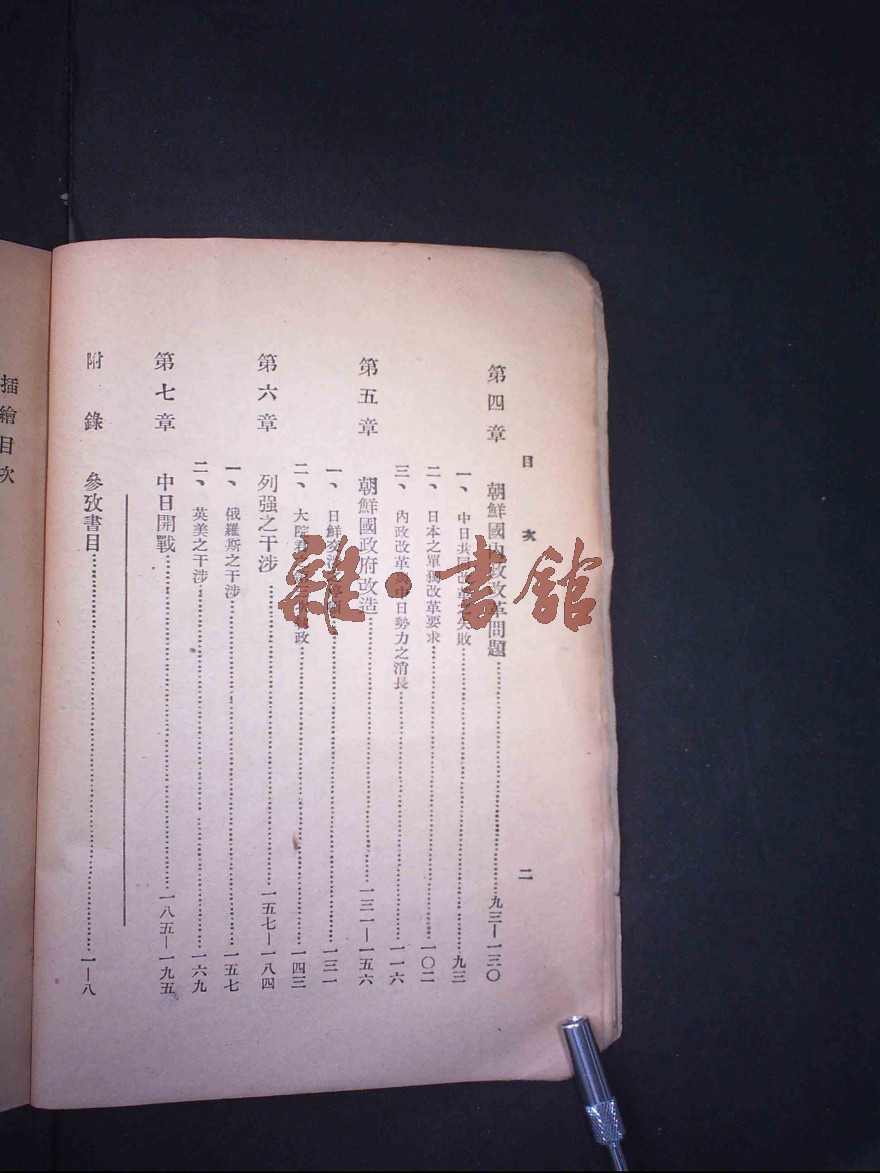 目次
二
第四章 朝鮮國內政改革問題……九三—一三〇
一、中日共同改革之失敗……九三
二、日本之單獨改革要求……一〇二
三、內政改革與中日勢力之消長……一一六
第五章 朝鮮國政府改造……一三一—一五六
一、日鮮交涉之……一三一
二、大院君之執政……一四三
第六章 列强之干涉……一五七—一八四
一、俄羅斯之干涉……一五七
二、英美之干涉……一六九
第七章 中日開戰……一八五—一九五
附錄 參攷書目……一—八
插繪目次
雜·書館